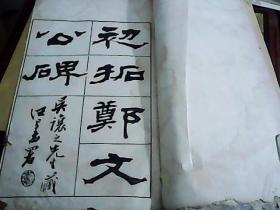 初拓鄭文
公碑
吳讓之先生藏